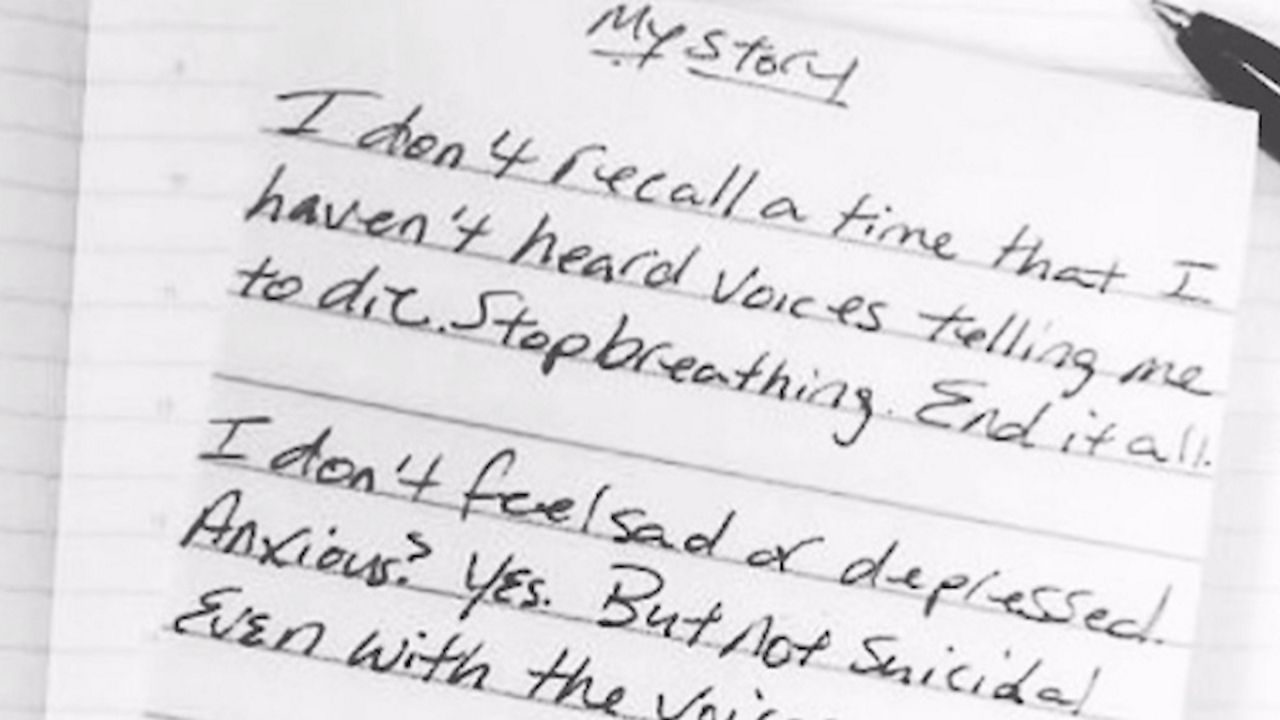 My story
I don't recall a time that I
haven't heard voices telling me
to die. Stop breathing. End it all.
I don't feel sad or depressed.
Anxious? Yes. But not suicidal
Even with the